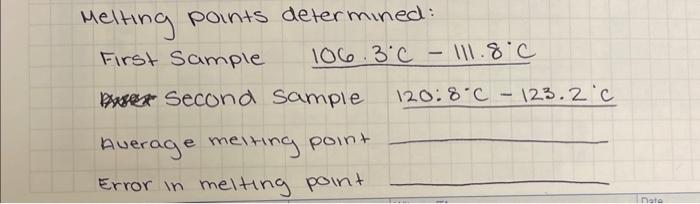 Melting points determined:
First Sample 106.3°C - 111.8°C
Second Sample 120.8°C - 123.2°C
Average melting point
Error in melting point
Date